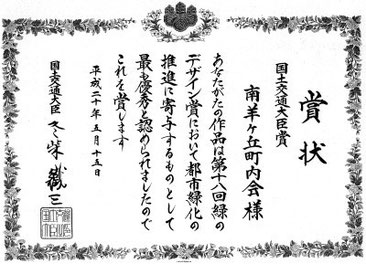 賞状
国土交通大臣賞
南羊ヶ丘町内会様
あなたがたの作品は第十八回緑の
デザイン賞において都市緑化の
推進に寄与するものとして
最も優秀と認められましたので
これを賞します
平成二十年五月十五日
国土交通大臣 冬柴鐵三